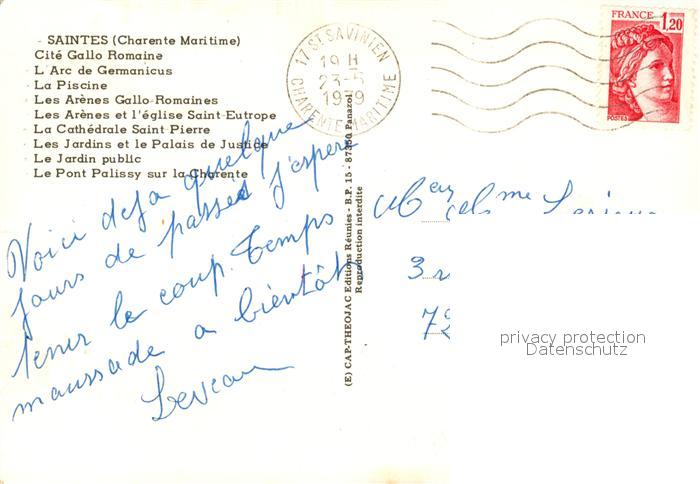 SAINTES (Charente Maritime)
Cité Gallo Romaine
L'Arc de Germanicus
La Piscine
Les Arènes Gallo-Romaines
Les Arènes et l'église Saint-Eutrope
La Cathédrale Saint Pierre
Les Jardins et le Palais de Justice
Le Jardin public
Le Pont Palissy sur la Charente
Voici deja quelque
jours de passés j'espere
tenir le coup. Temps
maussade a bientôt
17 ST SAVINIEN
19 H
23-5
1979
CHARENTE MARITIME
FRANCE
1,20
POSTES
(E) CAP-THEOJAC Editions Réunies - B.P. 15 - 87350 Panazol
Reproduction interdite
3
72
privacy protection
Datenschutz